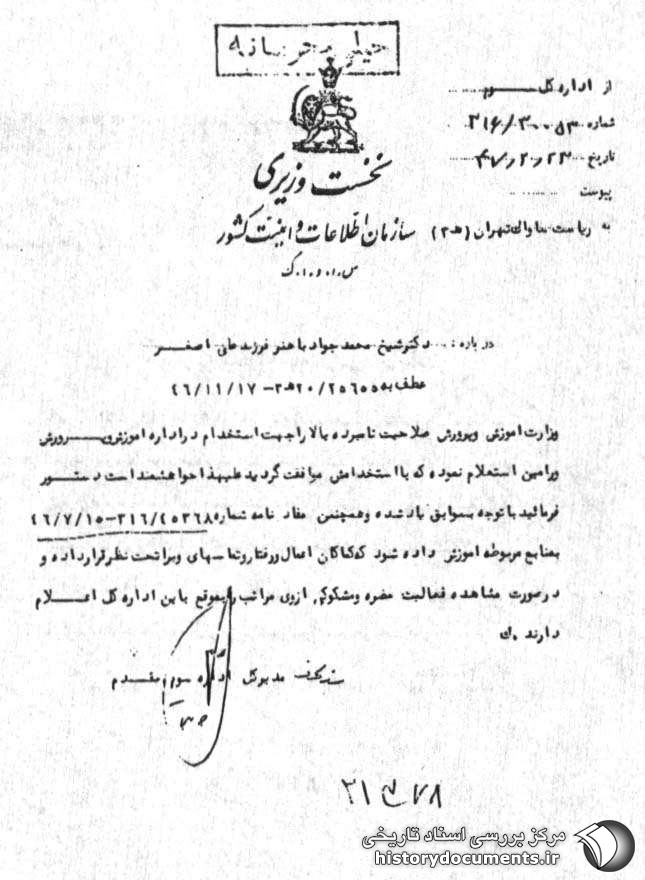 خیلی محرمانه
از اداره کل سوم
شماره ۳۱۶/۳۰۰۵۳
تاریخ ۴۷/۲/۲۳
پیوست
نخست وزیری
سازمان اطلاعات و امنیت کشور
به ریاست ساواک تهران (ه‍ ۳)
س.ا.و.ا.ک
درباره: دکتر شیخ محمد جواد باهنر فرزند علی اصغر
عطف به ۲۵۶۵۵/۲۰ه‍ ۳ – ۴۶/۱۱/۱۷
وزارت اموزش وپرورش صلاحیت نامبرده بالا را جهت استخدام در اداره اموزش و پرورش
ورامین استعلام نموده که با استخدامش موافقت گردید علیهذا خواهشمند است دستور
فرمائید با توجه بسوابق یاد شده و همچنین مفاد نامه شماره ۳۱۶/۴۵۳۶۸–۴۶/۷/۱۵
بمنابع مربوطه اموزش داده شود که کماکان اعمال و رفتار و تماسهای ویرا تحت نظر قرار داده و
در صورت مشاهده فعالیت مضره و مشکوکی از وی مراتب را بموقع باین اداره کل اعلام
دارند .ک
مدیرکل اداره سوم مقدم
مرکز بررسی اسناد تاریخی
historydocuments.ir